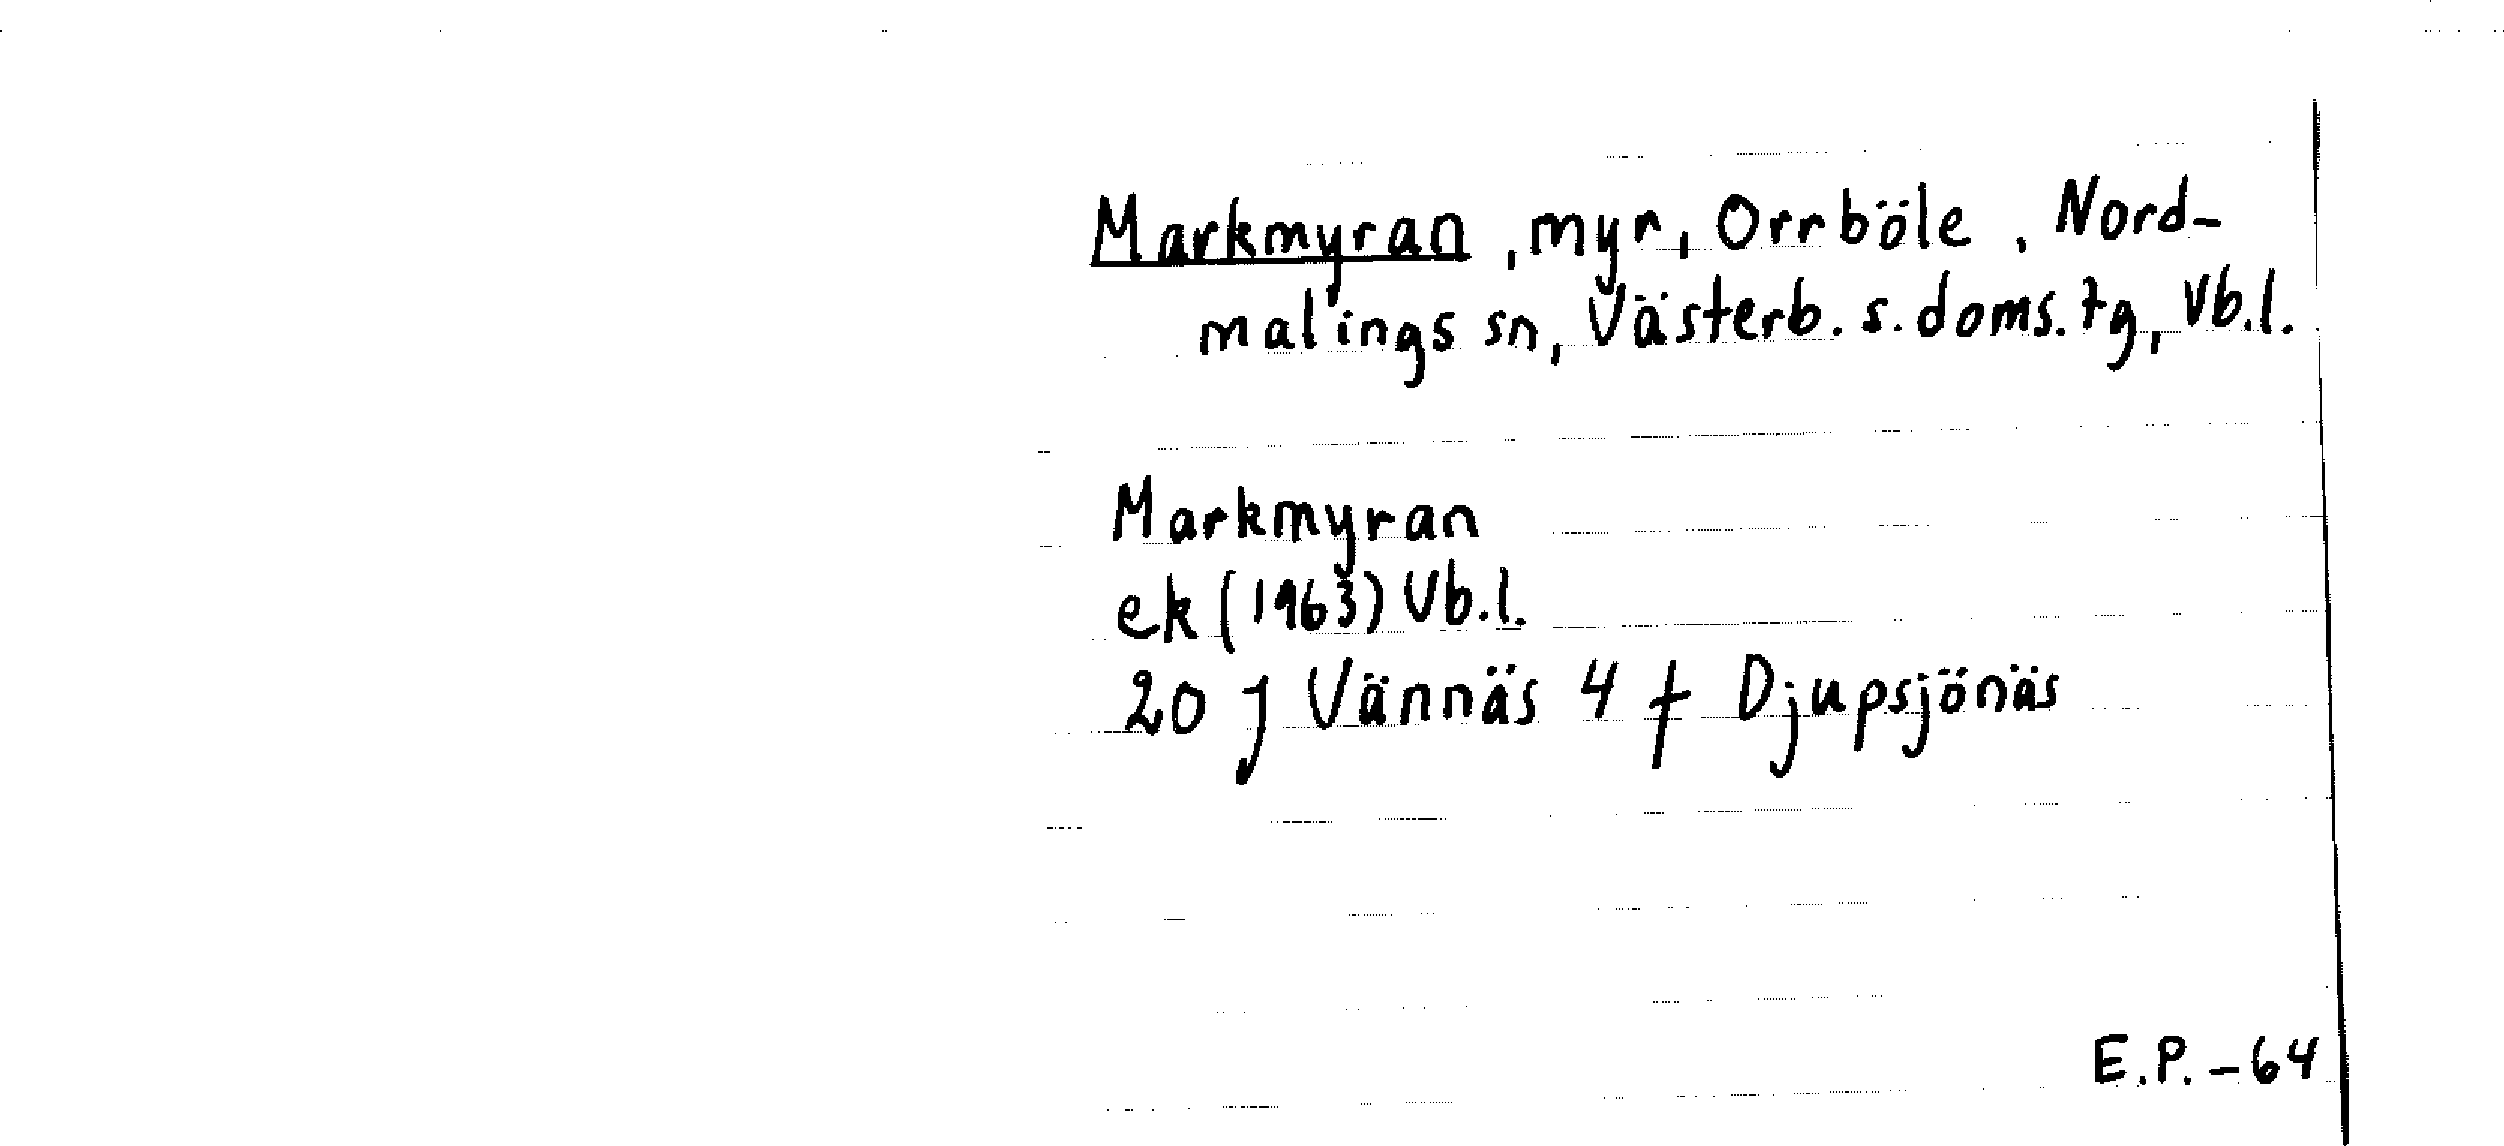 Markmyran, myr, Orrböle, Nord-
malings sn, Västerb. s. doms. tg, Vb.l.
Markmyran
ek (1963) Vb.l.
20 J Vännäs 4 f Djupsjönäs
E.P. - 64